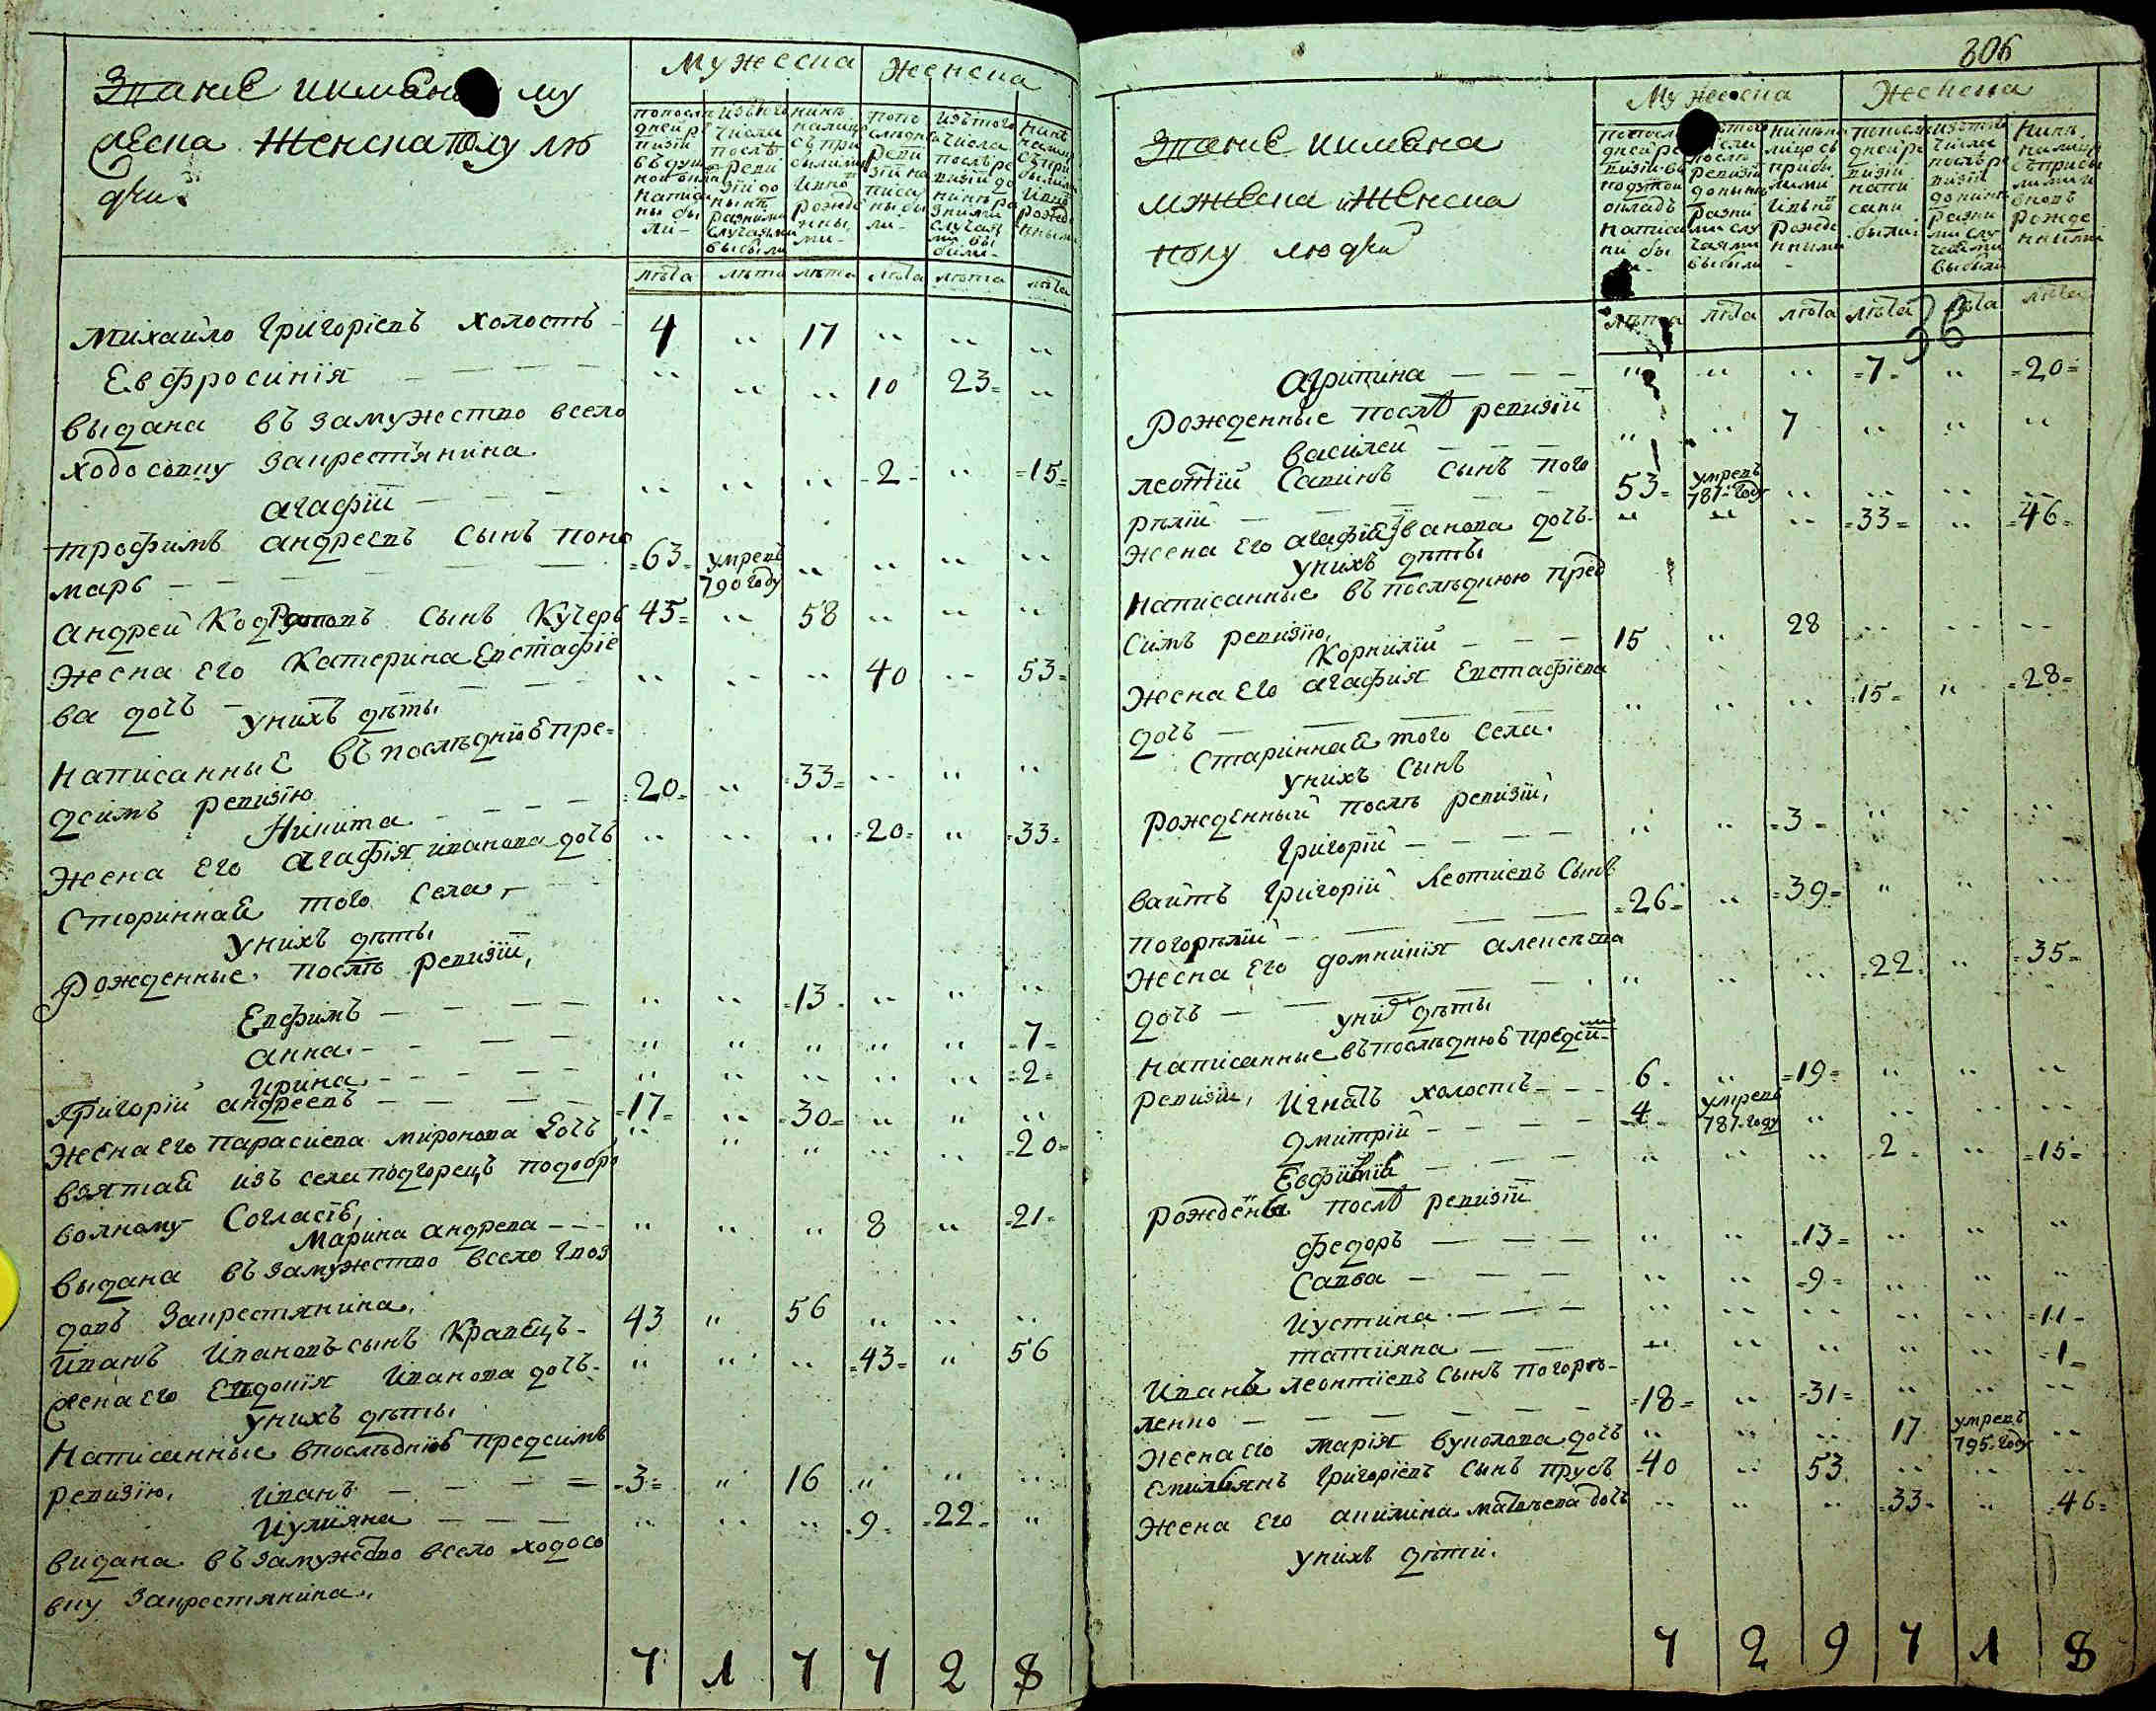 Званіе иимена му
жеска женска полу лю
дей
Мужеска
Женска
попослѣ
дней ре
визіи
въ душ
ном окла
написа
ны бы
ли
изъ того
числа
послѣ
реви
зіи до
нынѣ
разными
случаями
выбыли
нынѣ
налицо
съ при
былыми
ивно
рожде
нны
ми
попо
слѣдне
реви
зіи на
писа
ны бы
ли
изъ того
числа
послѣ ре
визіи до
нынѣ ра
зними
случая
ми вы
были
нынѣ
налиц
съ при
былими
ивно
рожде
нными
лѣта лѣта лѣта лѣта лѣта лѣта
Михайло Григоріевъ холостъ 4 " 17 " " "
Евфросинія " " " 10 23 "
выдана въ замужество всело
ходосовку закрестянина
агафіи " " " 2 " 15
трофимъ андреевъ сынъ поно
марь 63 умревъ 790 году " " " "
андрей Кодратовъ сынъ Кучеръ 45 " 58 " " "
жена его Катерина Евстафіе
ва дочъ " " " 40 " 53
унихъ дѣты
написанные въ послѣднюю пре
дсимъ ревизію
Никита 20 " 33 " " "
жена его агафія иванова дочъ " " " 20 " 33
старинная того села
унихъ дѣты
рожденные послѣ ревизіи,
Евфимъ " " 13 " " "
анна " " " " " 7
ирина " " " " " 2
Григорій андреевъ 17 " 30 " " "
жена его параскева миронова дочъ " " " " " 20
взятая изъ села подгорецъ подобро
волному согласію,
марина андрева " " " 8 " 21
выдана въ замужество всело гвоз
довъ закрестянина,
иванъ ивановъ сынъ Кравецъ 43 " 56 " " "
жена его Евдокія иванова дочъ " " " 43 " 56
унихъ дѣты
написанные впослѣднюю предсимъ
ревизію, иванъ 3 " 16 " " "
иулияна " " " 9 22 "
видана въ замужство всело ходосо
вку закрестянина,
7 1 7 7 2 8
306
Званіе иимена
мжеска иженска
полу людей
Мужеска
Женска
лѣта лѣта лѣта лѣта лѣта лѣта
36
агрипина " " " 7 " 20
рожденные послѣ ревизіи
василей " " 7 " " "
леотій Савинъ сынъ пого
рѣлій 53 умревъ 787 году " " " "
жена его агафія иванова дочъ " " " 33 " 46
унихъ дѣты
написанные въ послѣднюю пред
симъ ревизію,
корнилій 15 " 28 " " "
жена его агафия Евстафіева
дочъ " " " 15 " 28
старинная того села
унихъ сынъ
рожденный послѣ ревизіи,
Григорій " " 3 " " "
вайтъ Григорій леотиевъ сынъ
погорѣлій 26 " 39 " " "
жена его домникія алексѣева
дочъ " " " 22 " 35
уних дѣты
написанные въ послѣднюю предсим
ревизіи, игнатъ холостъ 6 " 19 " " "
дмитрій 4 умревъ 787 году " " " "
Евфимія " " " 2 " 15
рожденые послѣ ревизіи
федоръ " " 13 " " "
савва " " 9 " " "
иустина " " " " " 11
татияна " " " " " 1
иванъ леонтіевъ сынъ погорѣ
ленко 18 " 31 " " "
жена его марія вуколова дочъ " " " 17 умревъ 795 году "
емилиянъ григоріевъ сынъ прусъ 40 " 53 " " "
жена его акилина матвѣева дочъ " " " 33 " 46
унихъ дѣти.
7 2 9 7 1 8